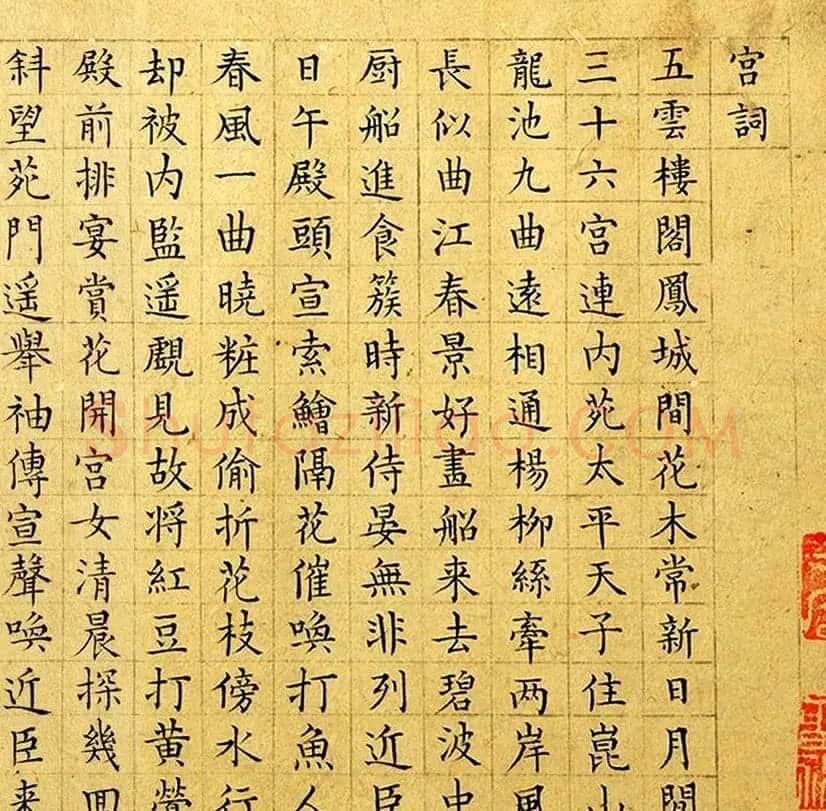 宫詞
五雲樓閣鳳城間花木常新日月
三十六宫連内苑太平天子住崑山
龍池九曲遠相通楊柳絲牽两岸風
長似曲江春景好畫船来去碧波中
厨船進食簇時新侍晏無非列近臣
日午殿頭宣索鱠隔花催喚打魚人
春風一曲曉粧成偷折花枝傍水行
却被内監遥覷見故将紅豆打黄鶯
殿前排宴賞花開宫女清晨探幾囬
斜望苑門遥舉袖傳宣聲喚近臣来
shufaziliao.COM